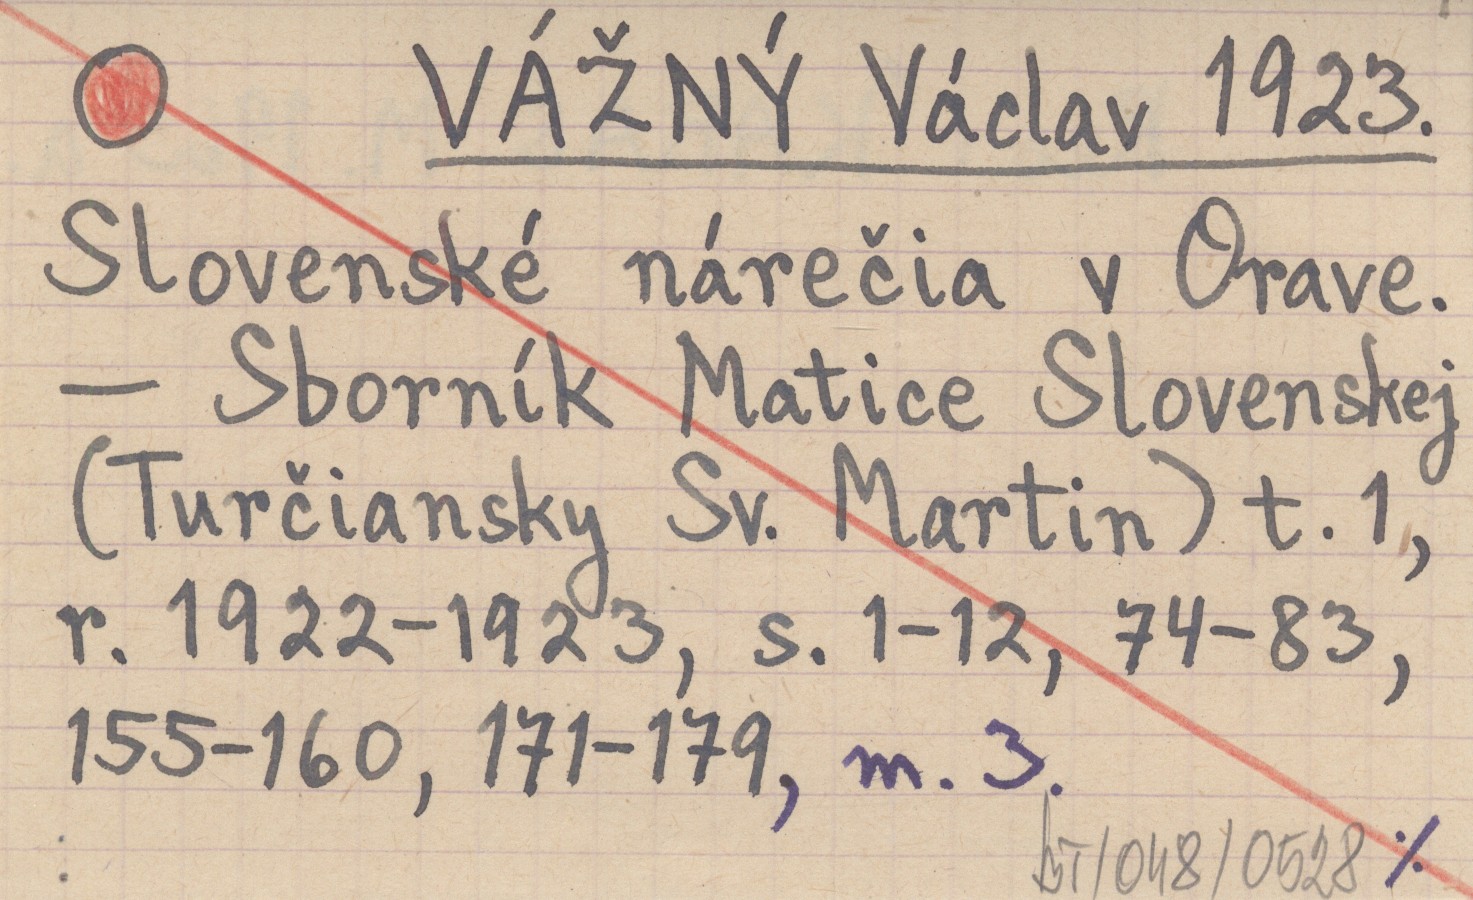 VÁŽNÝ Václav 1923.
Slovenské nárečia v Orave.
— Sborník Matice Slovenskej
(Turčiansky Sv. Martin) t. 1,
r. 1922–1923, s. 1–12, 74–83,
155–160, 171–179, m. 3.
/048/0528 ·/.